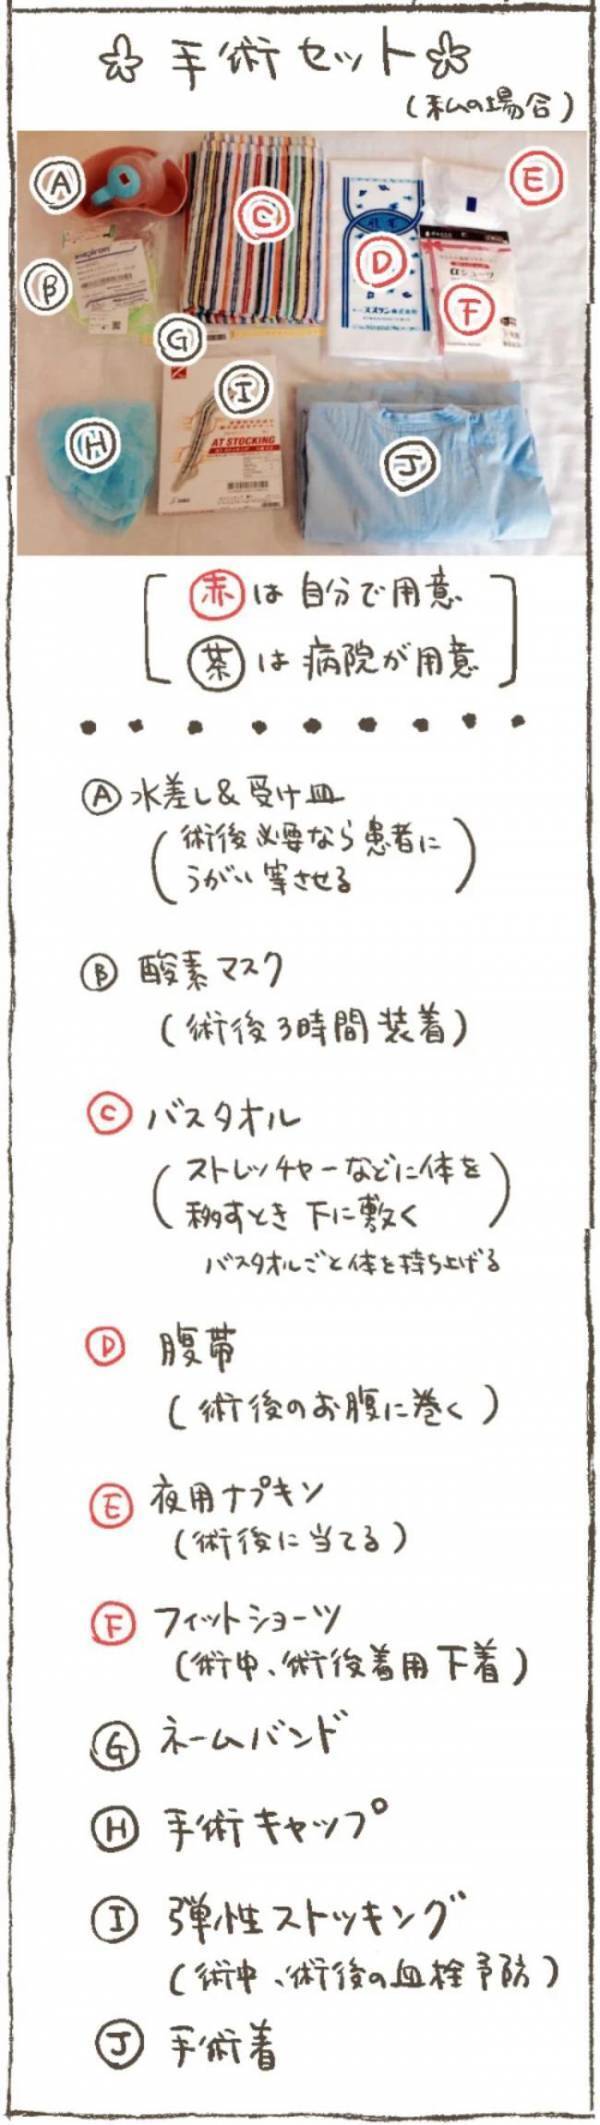 手術セット
(私の場合)
A
B
C
D
E
スズラン株式会社
F
G
I
AT STOCKING
H
J
赤は自分で用意
茶は病院が用意
A 水差し&受け皿
(術後必要なら患者に
うがい等させる)
B 酸素マスク
(術後3時間装着)
C バスタオル
(ストレッチャーなどに体を
移すとき下に敷く)
バスタオルごと体を持ち上げる
D 腹帯
(術後のお腹に巻く)
E 夜用ナプキン
(術後に当てる)
F フィットショーツ
(術中、術後着用下着)
G ネームバンド
H 手術キャップ
I 弾性ストッキング
(術中、術後の血栓予防)
J 手術着